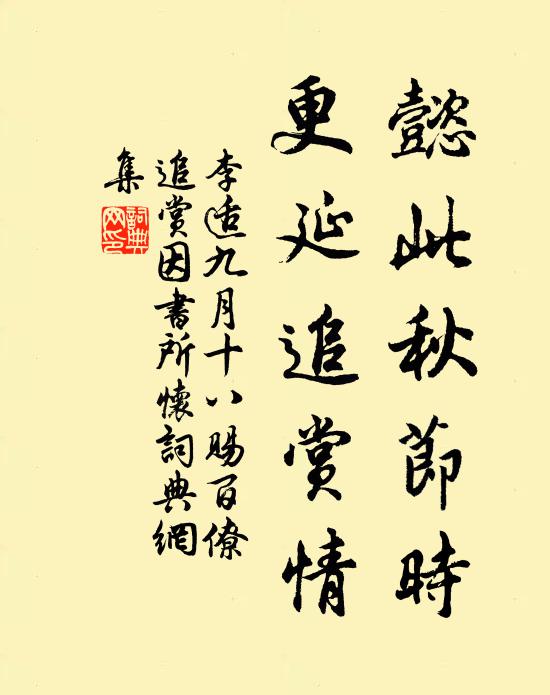 懿此秋節時
更延追賞情
李适九月十八賜百僚
追賞因書所懷詞典網
集
詞典網印